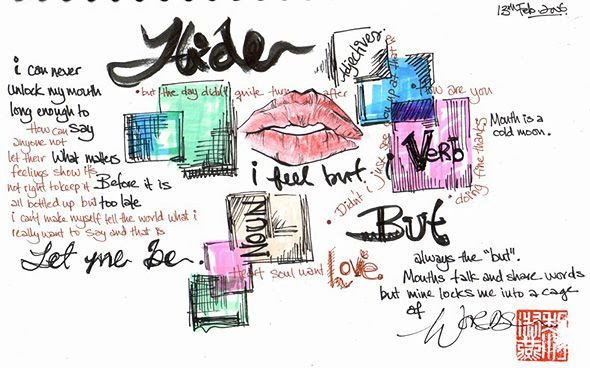 13th Feb 2006
Hide
i can never
unlock my mouth
long enough to
How can say
anyone not
let their what matters
feelings show it's
not right to keep it Before it is
all bottled up but too late
i can't make myself tell the world what i
really want to say and that is
Let me be.
but the day didn't quite turn after
Adjectives
How are you
Mouth is a
cold moon.
Verb
doing fine thanks
Didn't i just see you
i feel but.
NOUN
Heart soul want Love.
BUT
always the "but".
Mouths talk and share words
but mine locks me into a cage
of Words